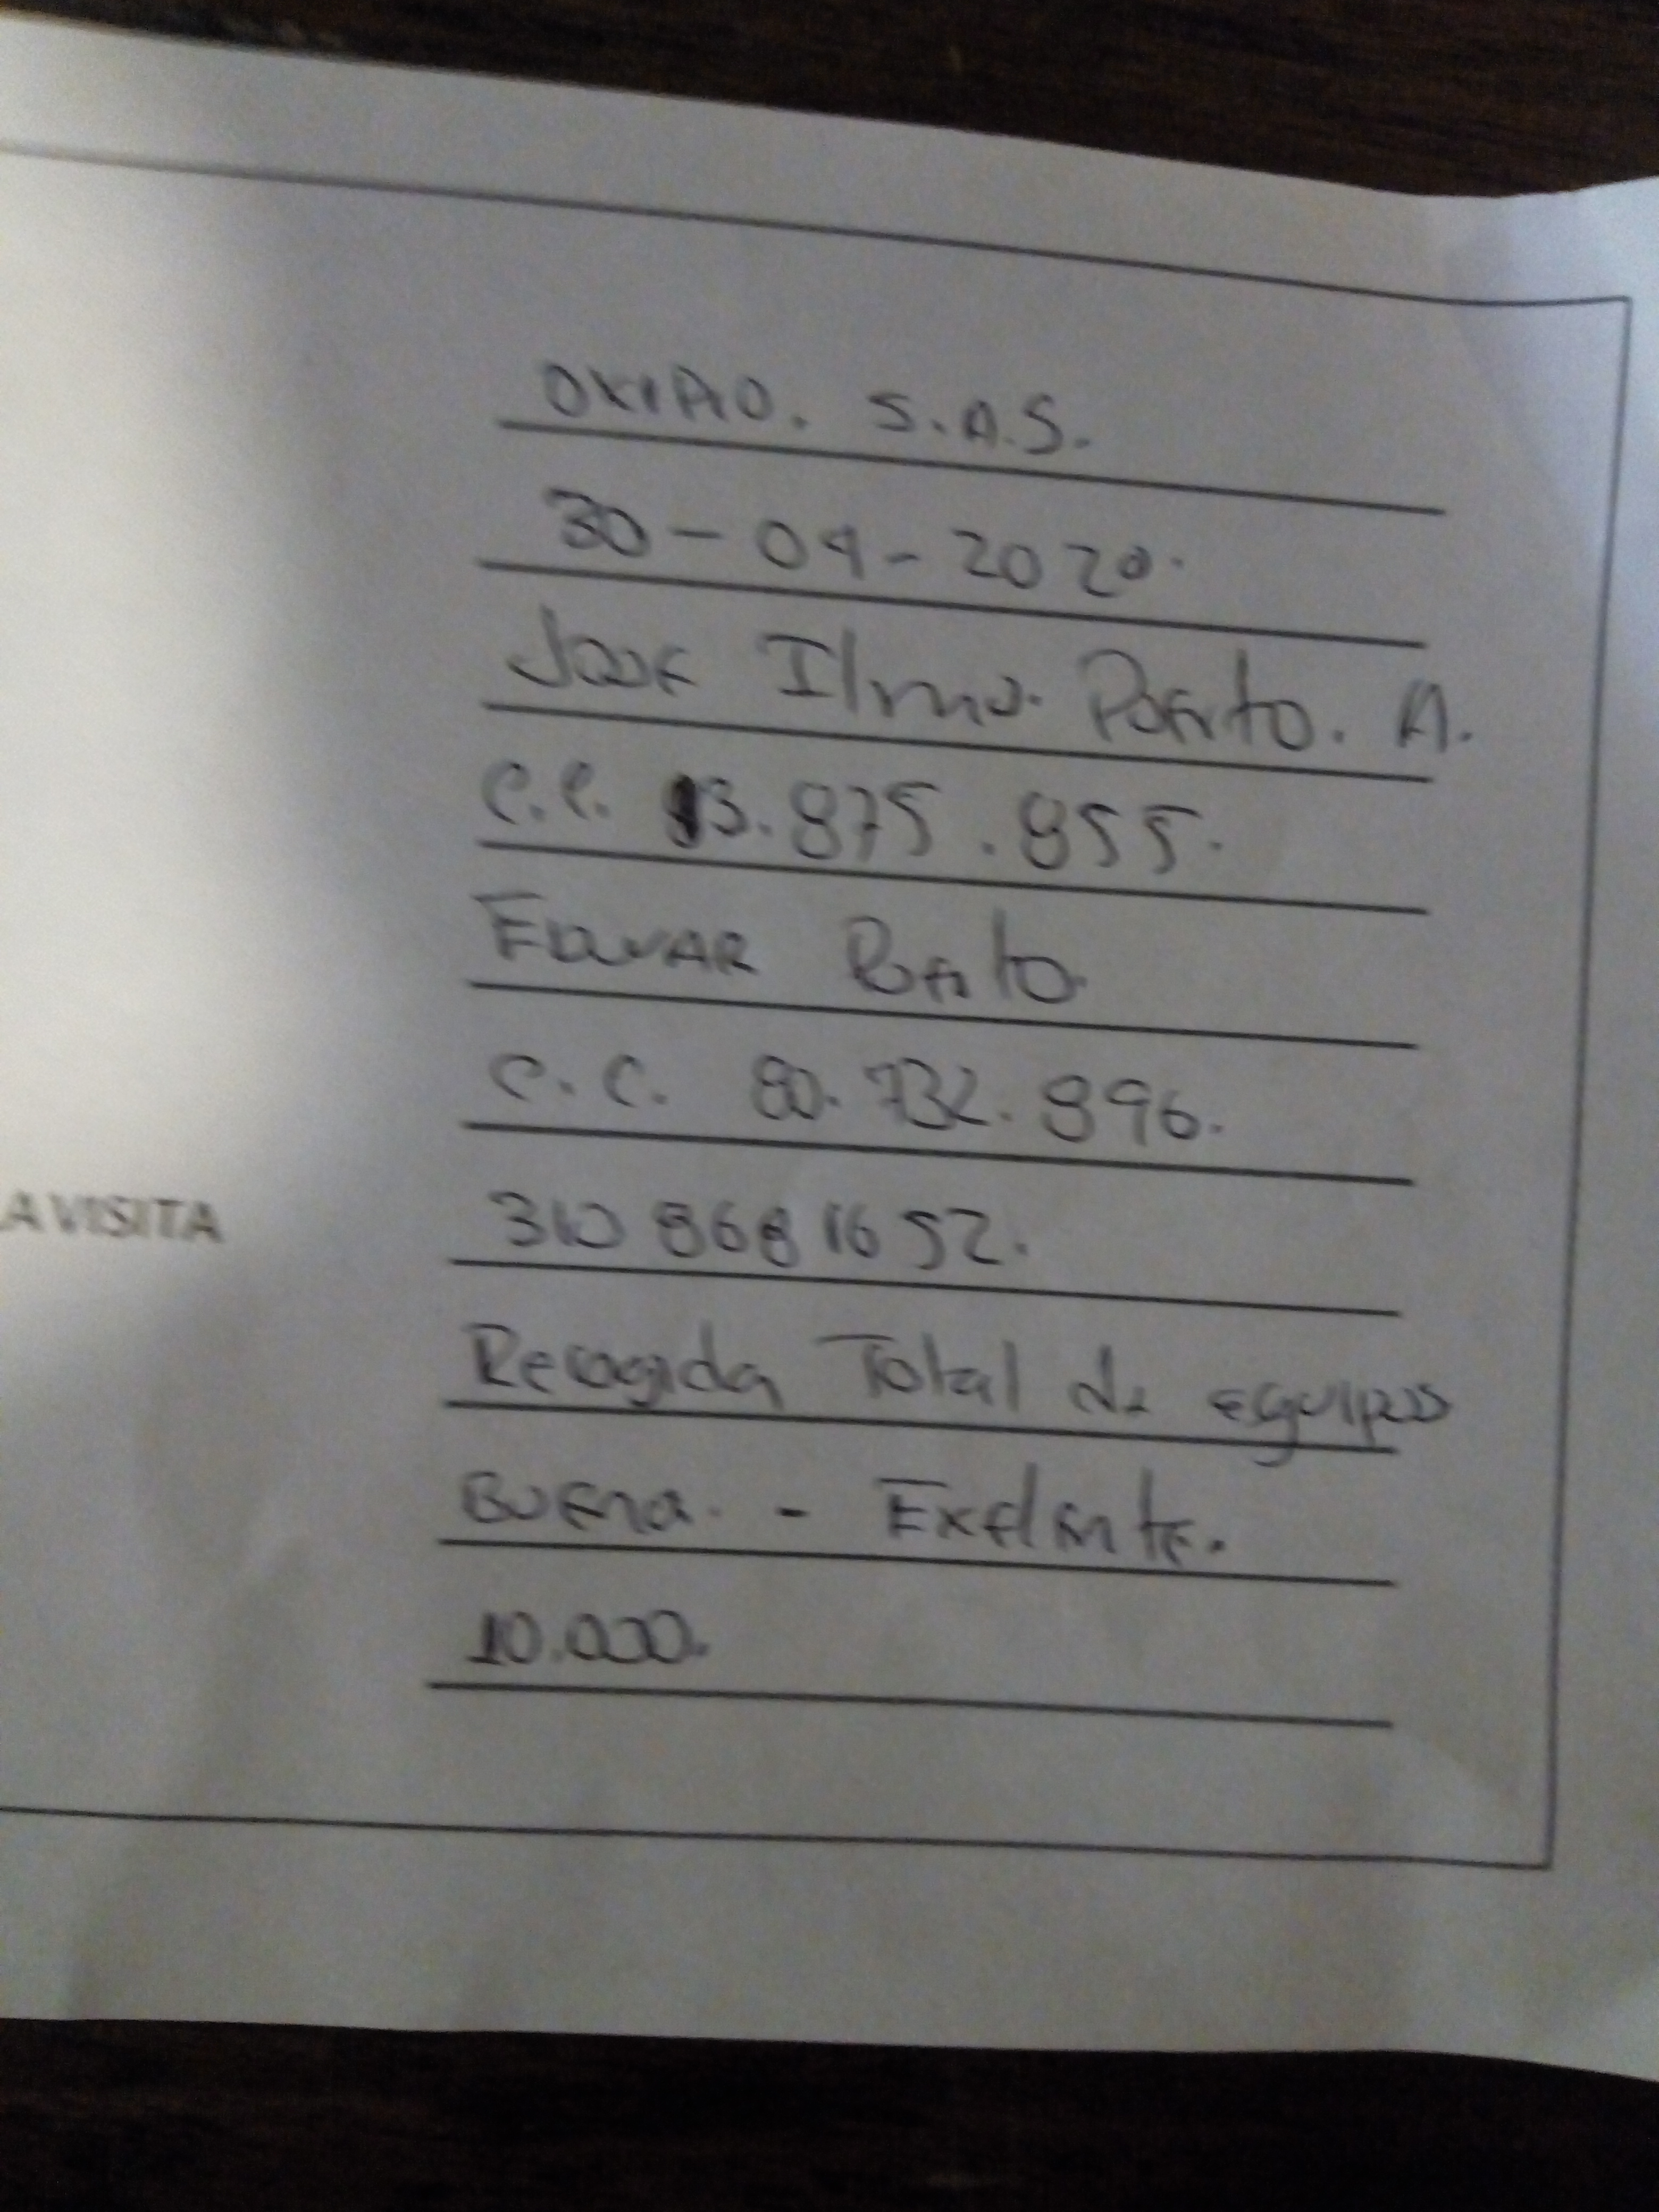 S.A.S.
30-04-2020.
Jose Ilmo. Puerto. A.
C.C. 13.875.855.
Puerto
C.C. 80.732.896.
A VISITA 310 8681652.
Recogida Total de equipos
Buena. - Exelente.
10.000.